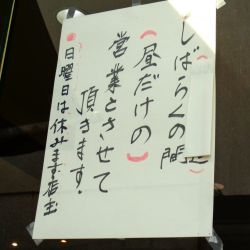 しばらくの間
(昼だけの)
営業とさせて
頂きます.
●日曜日は休みます.店主